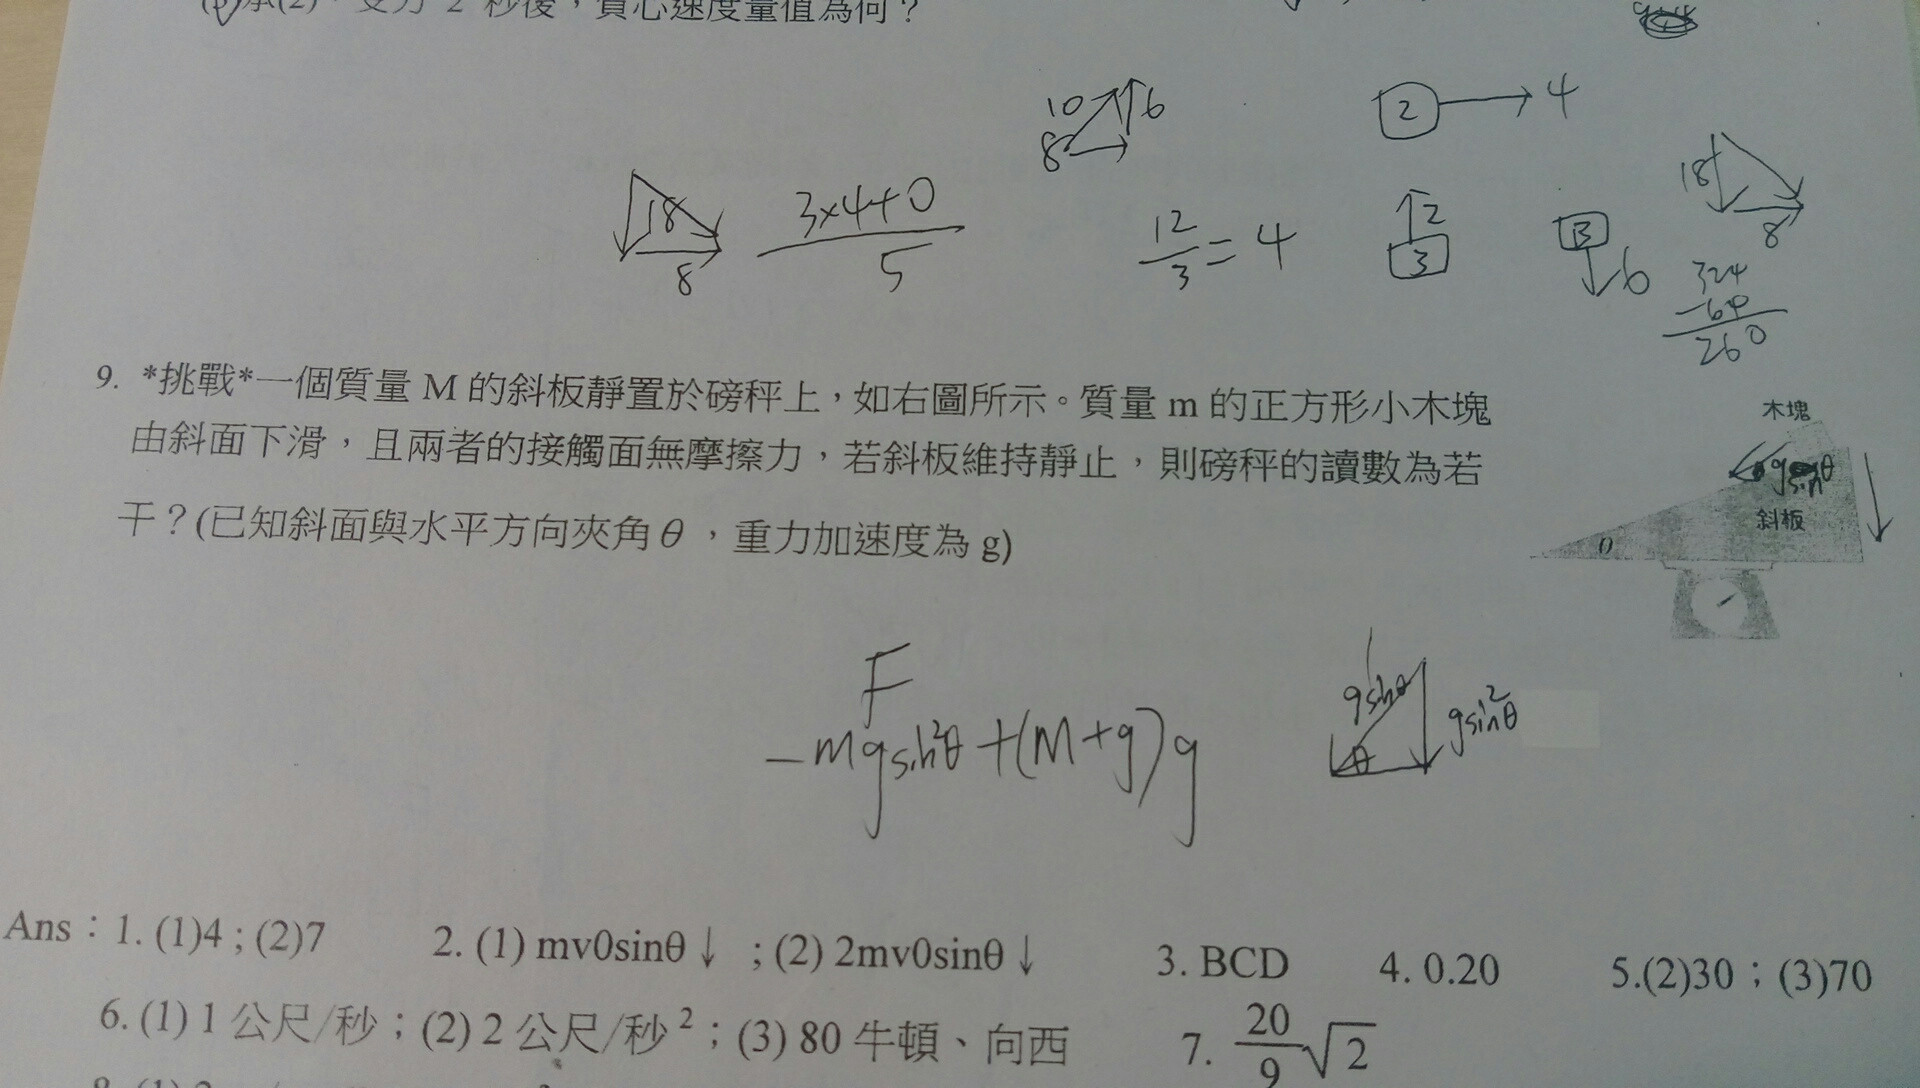 (3)承(2)，受力 2 秒後，質心速度量值為何？
10
6
8
2
4
18
8
3×4+0
5
12
3
= 4
2
3
3
6
18
8
324
-64
260
9. *挑戰*一個質量 M 的斜板靜置於磅秤上，如右圖所示。質量 m 的正方形小木塊
由斜面下滑，且兩者的接觸面無摩擦力，若斜板維持靜止，則磅秤的讀數為若
干？(已知斜面與水平方向夾角θ，重力加速度為 g)
木塊
gsinθ
斜板
θ
F
-mgsin²θ+(M+g)g
gsinθ
gsin²θ
θ
Ans：1. (1)4 ; (2)7 2. (1) mv0sinθ↓ ; (2) 2mv0sinθ↓ 3. BCD 4. 0.20 5.(2)30；(3)70
6. (1) 1 公尺/秒；(2) 2 公尺/秒²；(3) 80 牛頓、向西 7. 20/9 √2